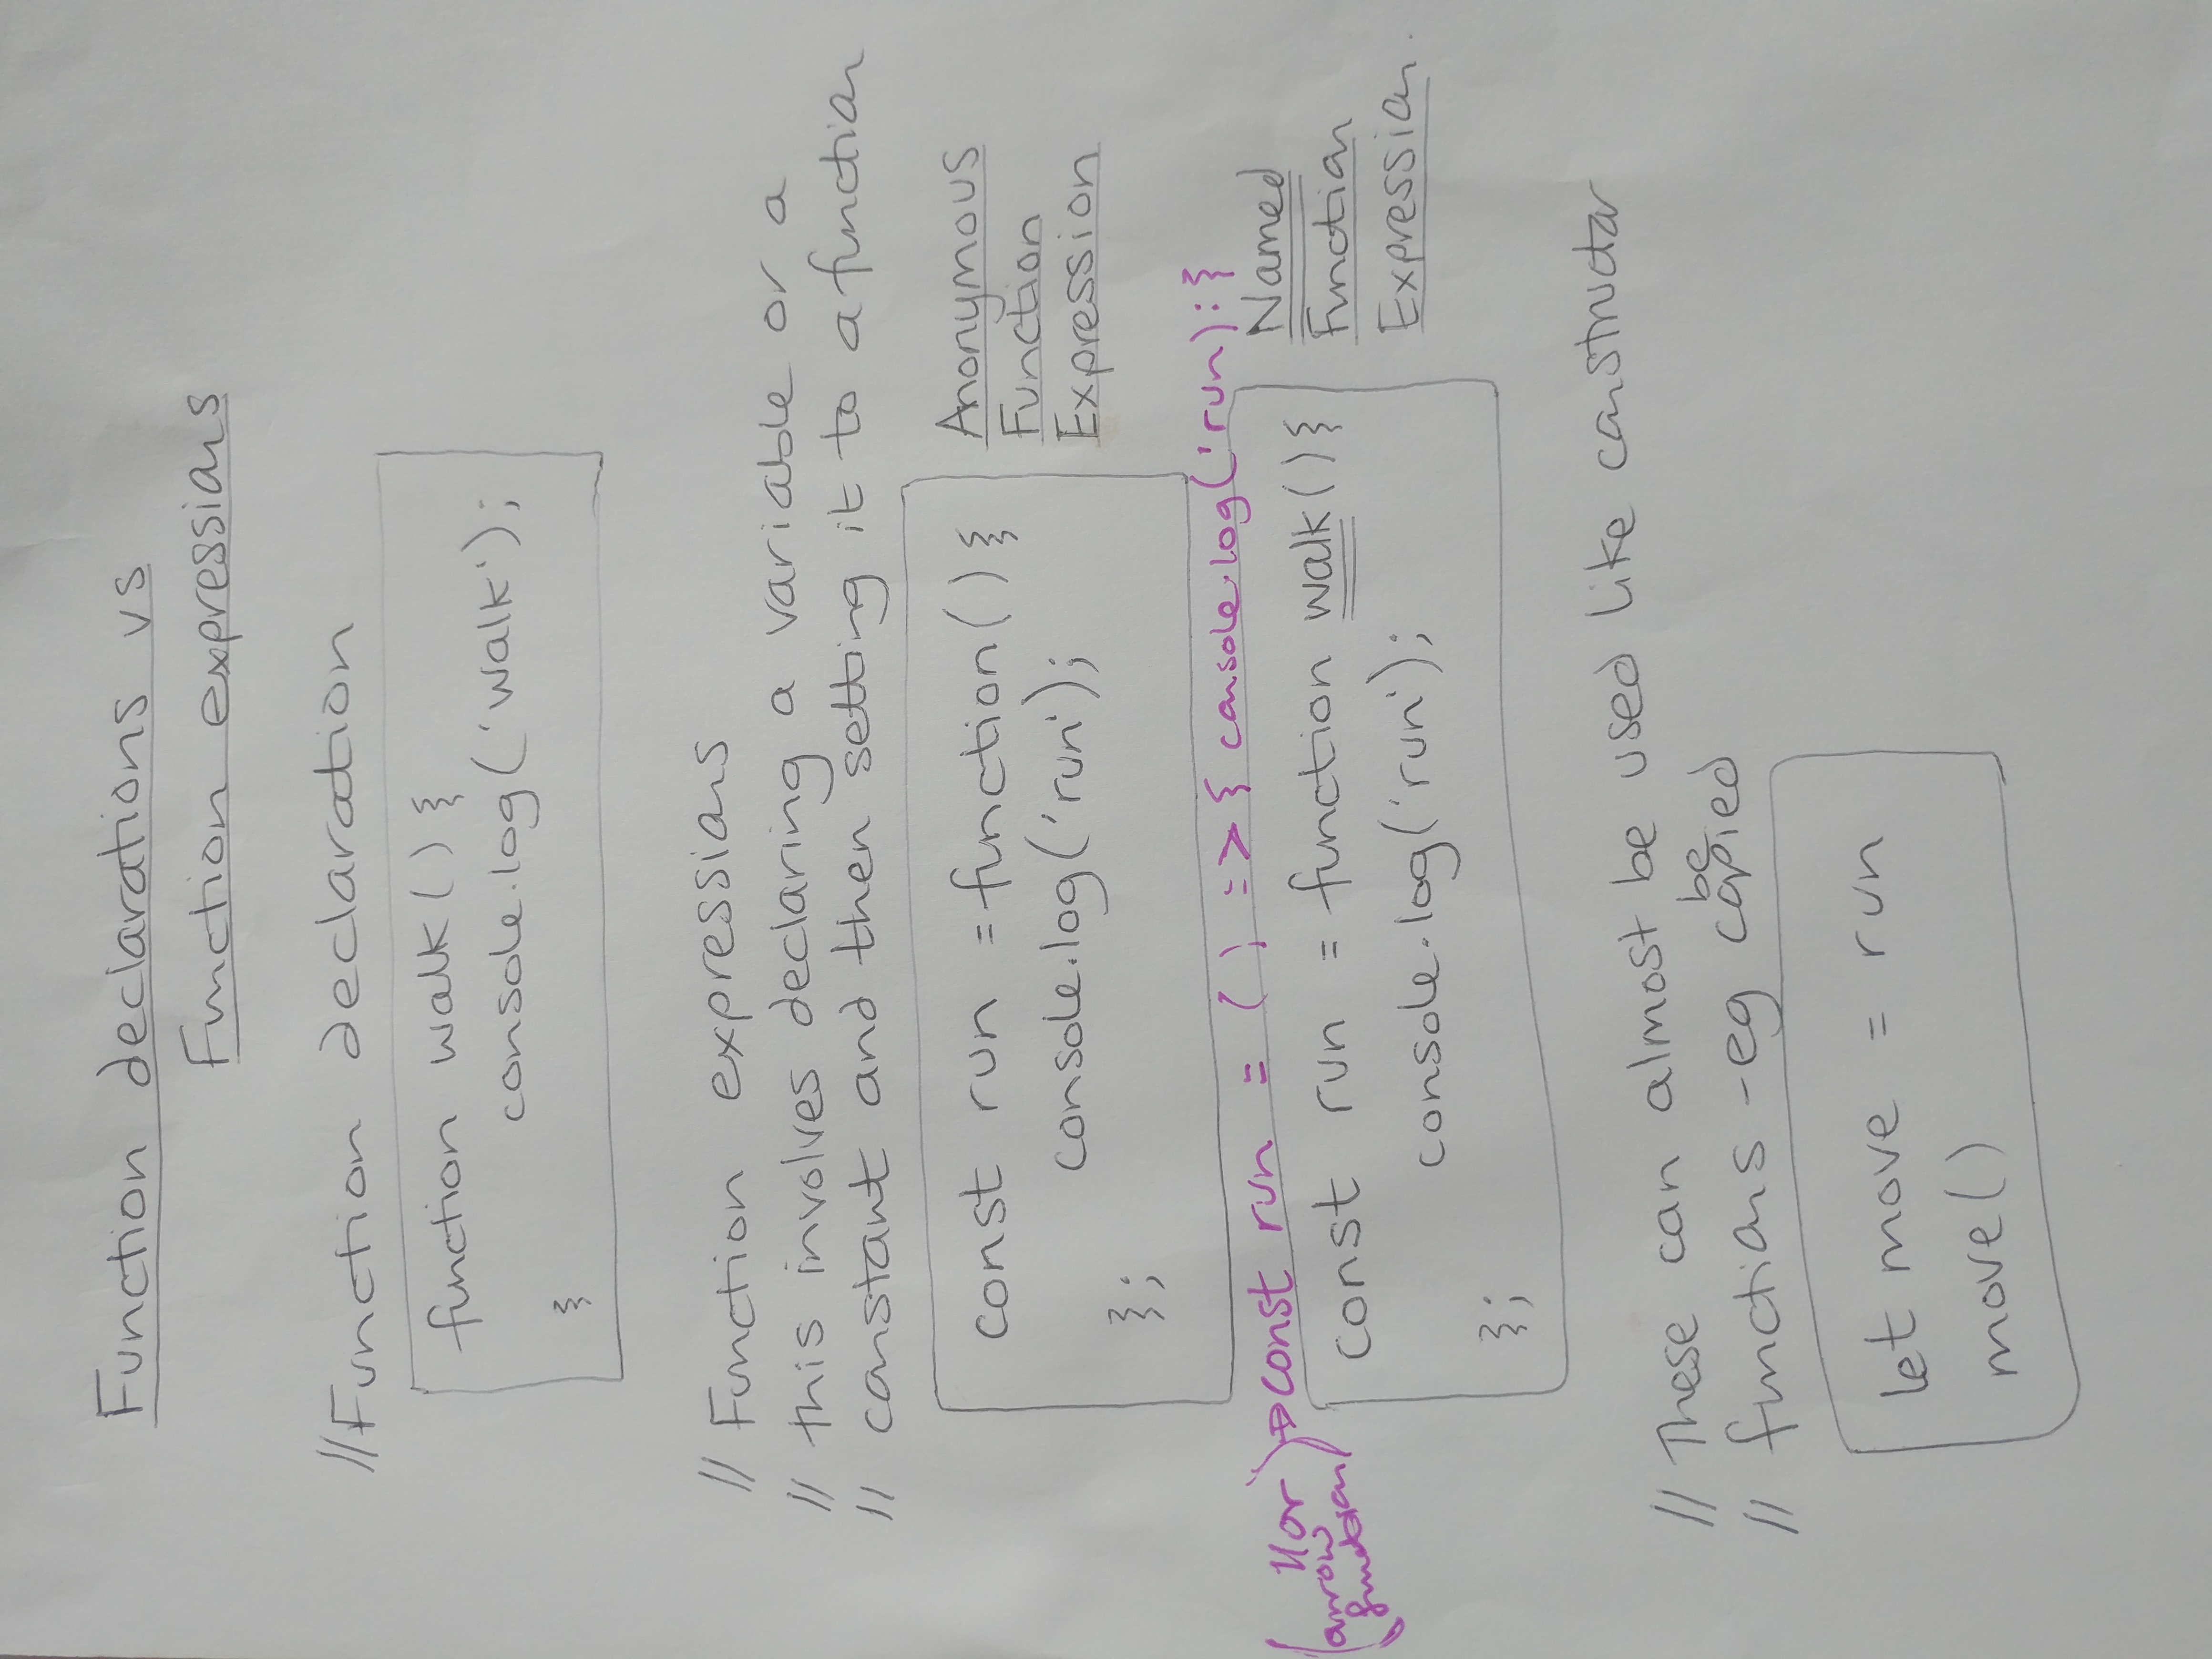 Function declarations vs
Function expressions
//Function declaration
function walk() {
console.log('walk');
}
// Function expressions
// this involves declaring a variable or a
// constant and then setting it to a function
const run = function() {
console.log('run');
};
Anonymous
Function
Expression
//or
(arrow
function)
const run = () => { console.log('run'): }
const run = function walk() {
console.log('run');
};
Named
Function
Expression.
// These can almost be used like constructor
// functions - eg be copied
let move = run
move()